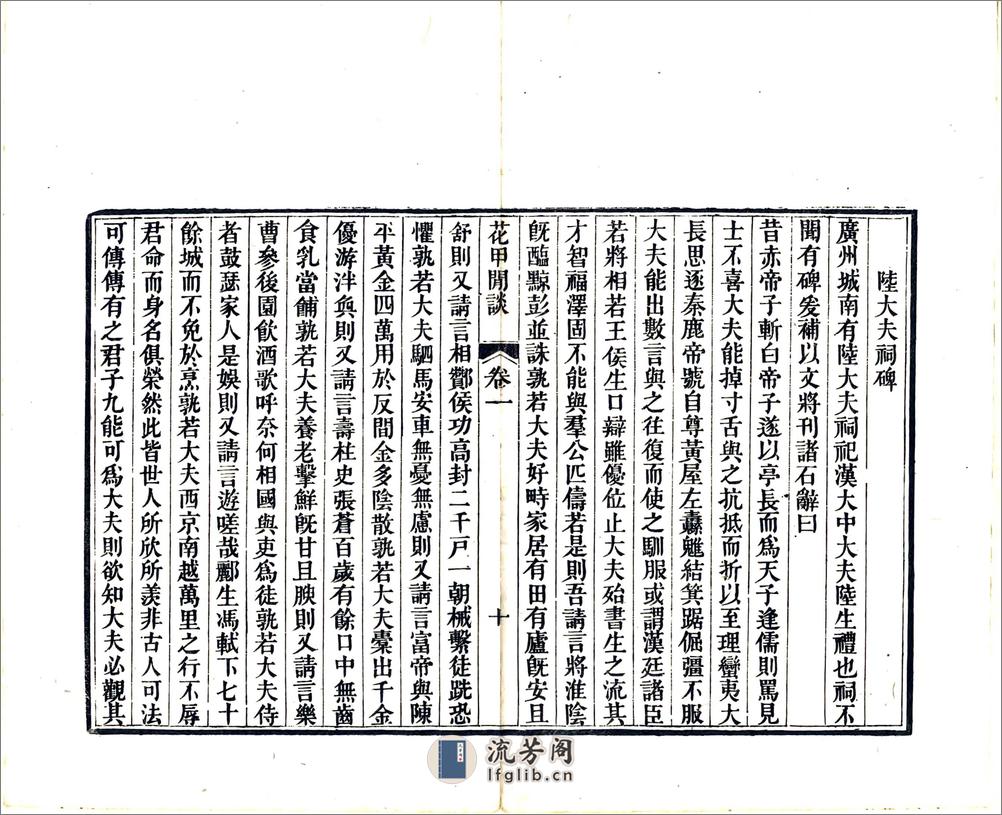 陸大夫祠碑
廣州城南有陸大夫祠祀漢大中大夫陸生禮也祠不
聞有碑爰補以文將刊諸石辭曰
昔赤帝子斬白帝子遂以亭長而爲天子逢儒則罵見
士不喜大夫能掉寸舌與之抗抵而折以至理蠻夷大
長思逐秦鹿帝號自尊黃屋左纛魋結箕踞倔彊不服
大夫能出數言與之往復而使之馴服或謂漢廷諸臣
若將相若王侯生口辯雖優位止大夫殆書生之流其
才智福澤固不能與羣公匹儔若是則吾請言將淮陰
旣醢黥彭並誅孰若大夫好畤家居有田有廬旣安且
花甲閒談
卷一
十
舒則又請言相酇侯功高封二千戸一朝械繫徒跣恐
懼孰若大夫駟馬安車無憂無慮則又請言富帝與陳
平黃金四萬用於反間金多陰散孰若大夫橐出千金
優游泮奐則又請言壽柱史張蒼百歲有餘口中無齒
食乳當餔孰若大夫養老擊鮮旣甘且腴則又請言樂
曹參後園飮酒歌呼奈何相國與吏爲徒孰若大夫侍
者鼓瑟家人是娛則又請言遊嗟哉酈生馮軾下七十
餘城而不免於烹孰若大夫西京南越萬里之行不辱
君命而身名俱榮然此皆世人所欣所羨非古人可法
可傳傳有之君子九能可爲大夫則欲知大夫必觀其
流芳阁
lfglib.cn